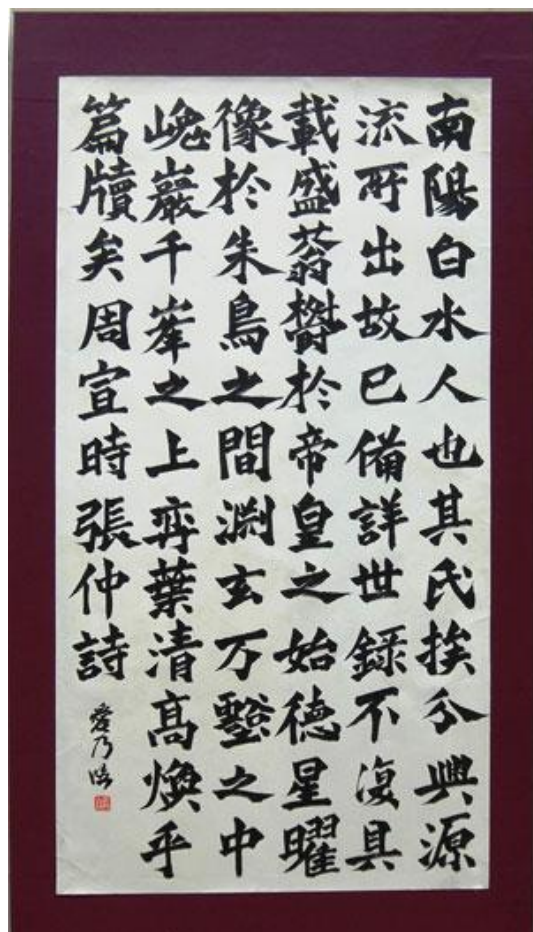 南陽白水人也其氏族分興源
流所出故已備詳世録不復具
載盛蓊欝於帝皇之始德星曜
像於朱鳥之間淵玄万壑之中
嵬巖千峯之上弈葉清高煥乎
篇牘矣周宣時張仲詩
愛乃